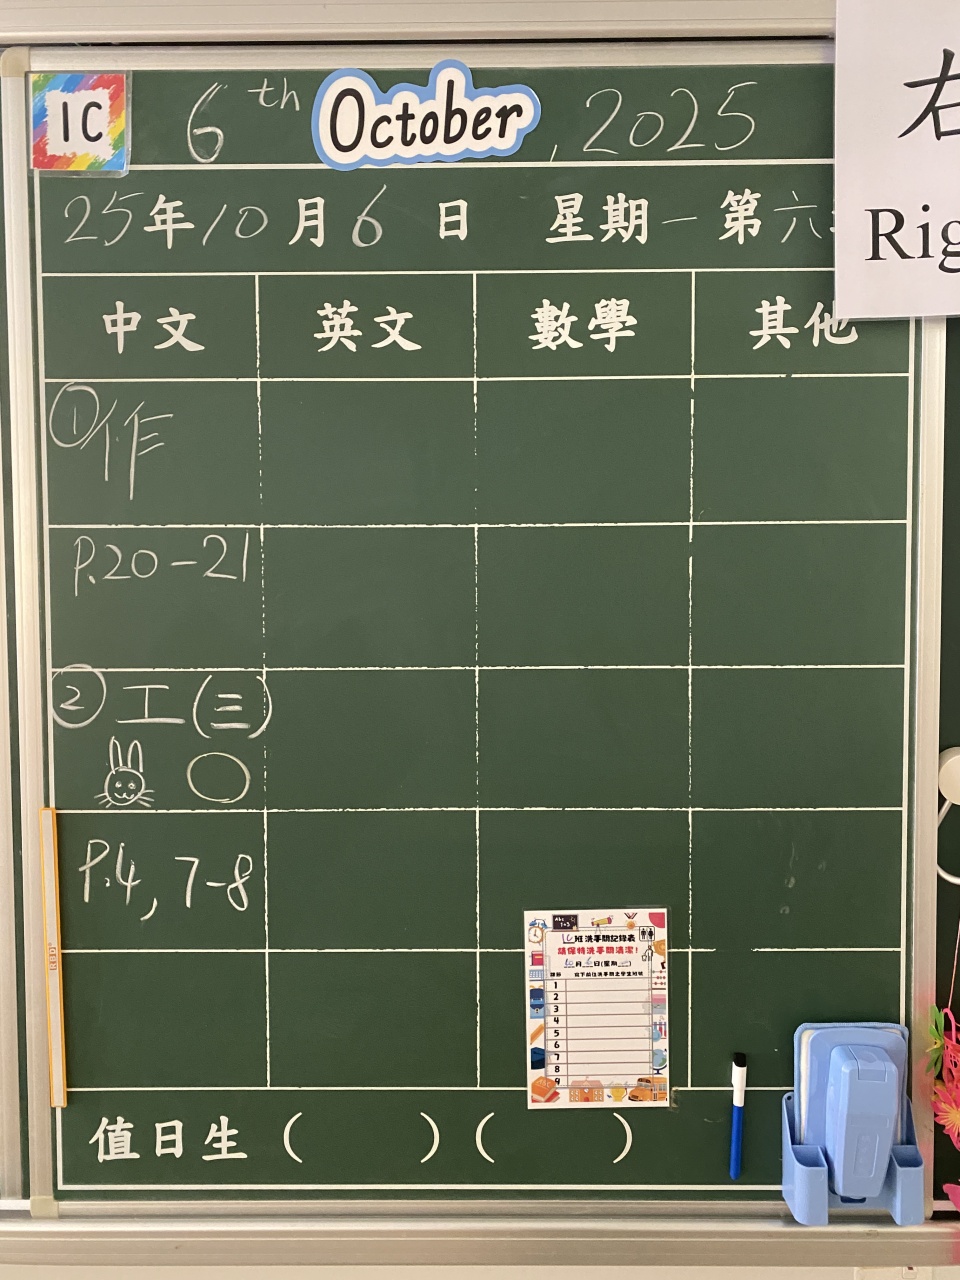 1C
6th October, 2025
25年10月6日 星期一 第六
右
Rig
中文 英文 數學 其他
①作
P.20-21
②工(三)
P.4, 7-8
1C班洗手間記錄表
請保持洗手間清潔！
10月6日(星期一)
課節 寫下前往洗手間之學生班號
1
2
3
4
5
6
7
8
9
值日生( )( )